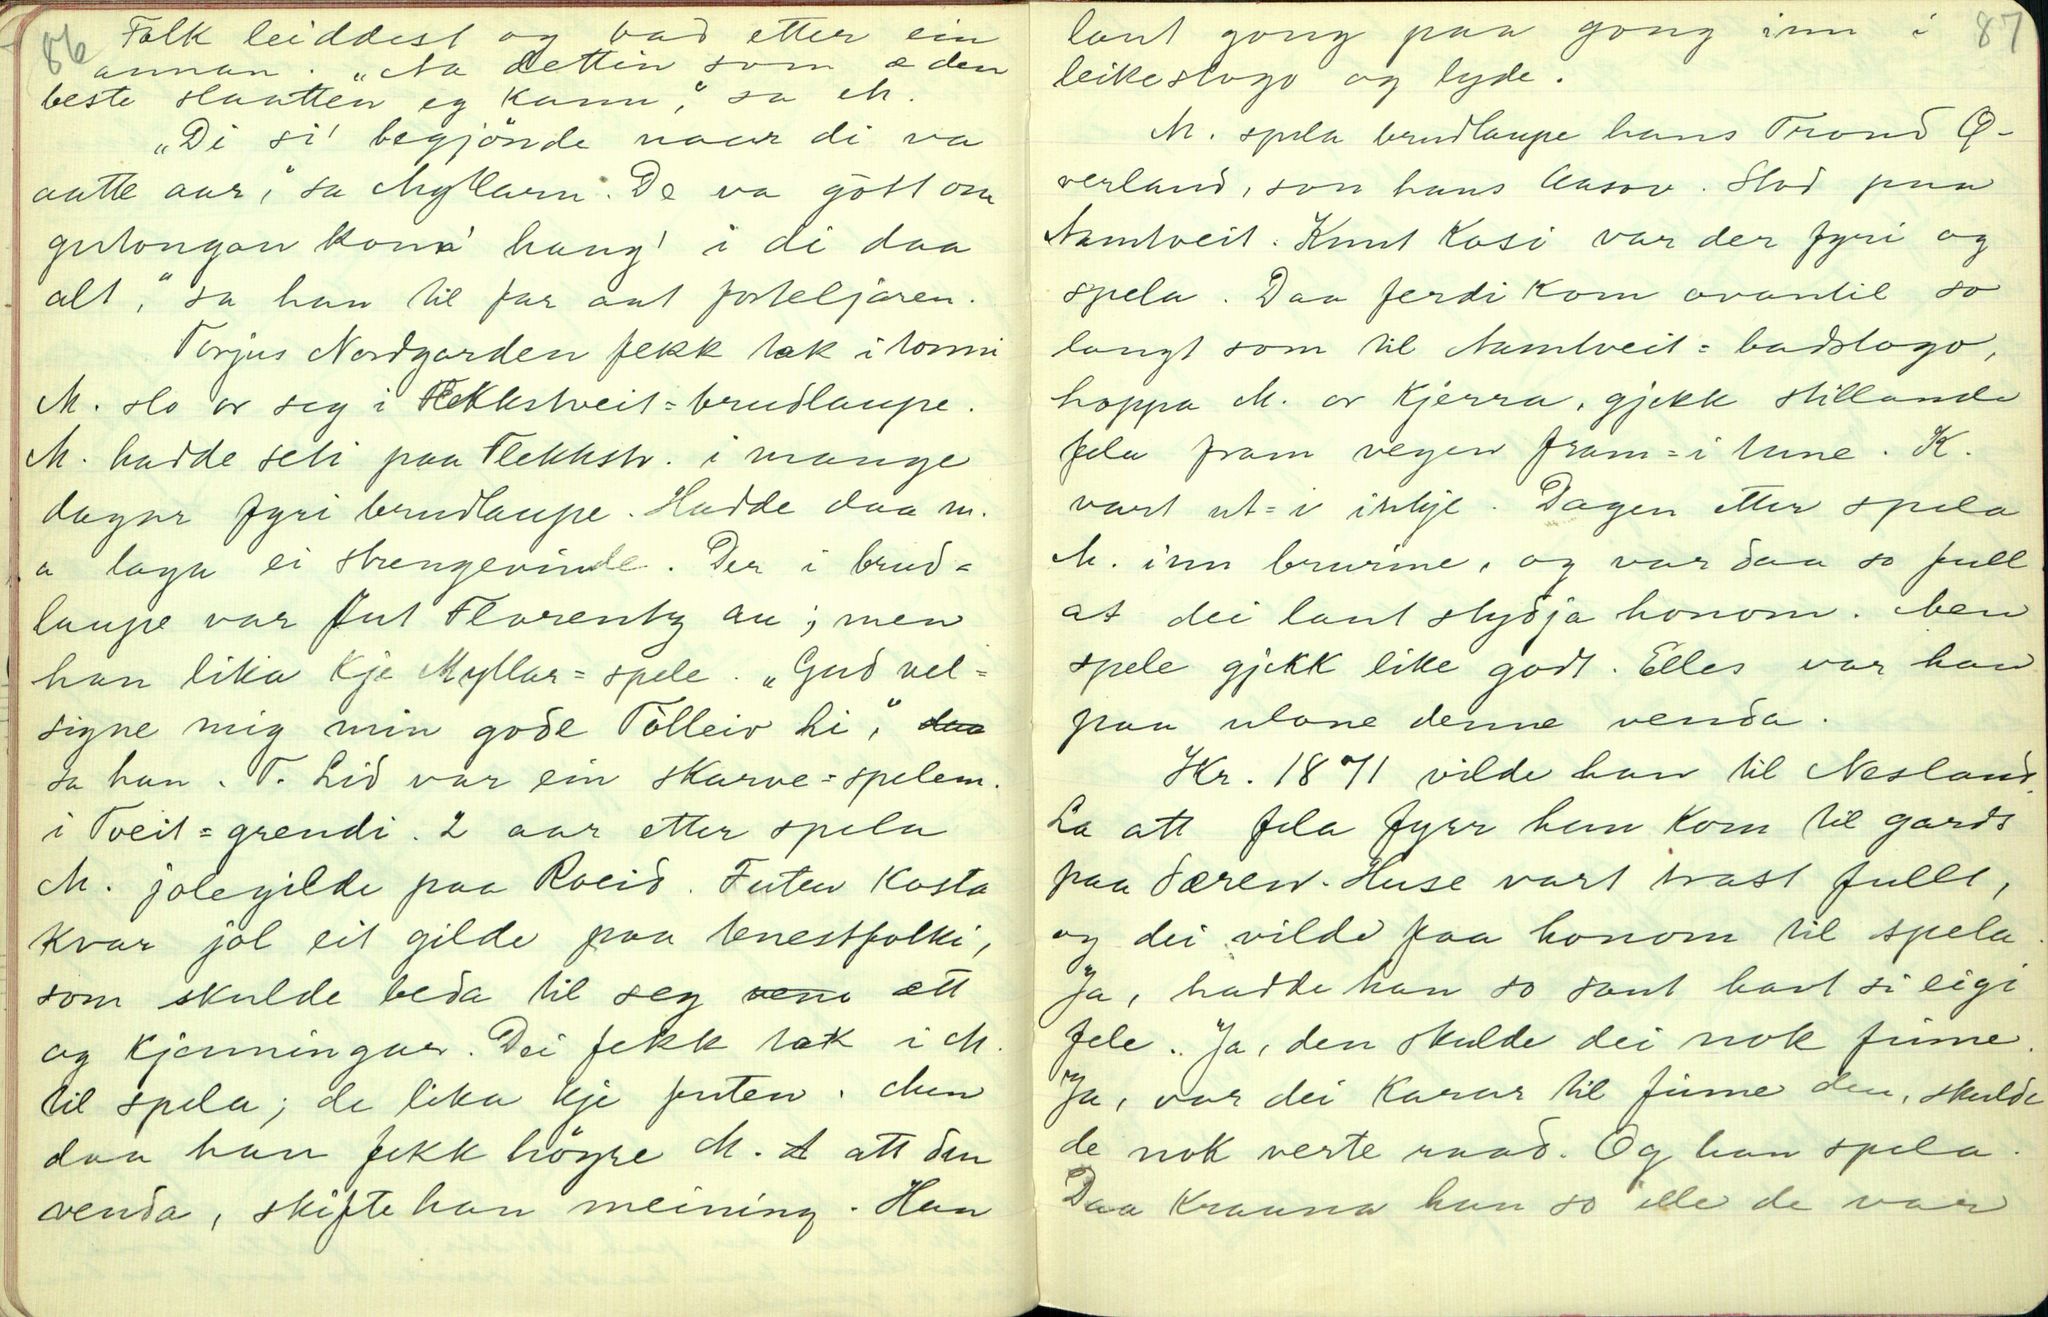 86
Folk leiddest og bad etter ein
annan. „Na dettin som æ den
beste slaatten eg kann," sa M.
„Di si' begjönde naar di va
aatte aar," sa Myllarn. De va gott om
gutongan kom' haug' i di daa
alt," sa han til far aat forteljaren.
Torjus Nordgarden fekk tak i tonni
M. slo or seg i Flekkstveit=brudlaupe.
M. hadde seti paa Flekkstv. i mange
dagar fyri brudlaupe. Hadde daa m.
a laga ei strengevinde. Der i brud=
laupe var fut Florentz au; men
han lika kje Myllar=spele. „Gud vel=
signe mig min gode Tölleiv Li," daa
sa han. T. Lid var ein skarve=spelem.
i Tveit=grendi. 2 aar etter spela
M. jolegilde paa Roeid. Futen kosta
kvar jol eit gilde paa tenestfolki,
som skulde beda til seg ætt
og kjenningar. Dei fekk tak i M.
til spela; de lika kje futen. Men
daa han fekk höyre M. att den
venda, skifte han meining. Han
87
laut gong paa gong inn i
leikestogo og lyde.
M. spela brudlaupe hans Trond Ø-
verland, son hans Aasov. Stod paa
Namtveit. Knut Kasi var der fyri og
spela. Daa ferdi kom ovantil so
langt som til Namtveit=badstogo,
hoppa M. or kjerra, gjekk stillande
fela fram vegen fram=i tune. K.
vart ut=i inkje. Dagen etter spela
M. inn brurine, og var daa so full
at dei laut stydja honom. Men
spele gjekk like godt. Elles var han
paa utane denne venda.
Kr. 1871 vilde han til Nesland.
La att fela fyrr han kom til gards
paa Særen. Huse vart trast fullt,
og dei vilde faa honom til spela.
Ja, hadde han so sant havt si eigi
fele.. Ja, den skulde dei nok finne.
Ja, var dei karar til finne den, skulde
de nok verte raad. Og han spela.
Daa kraana han so ille de var